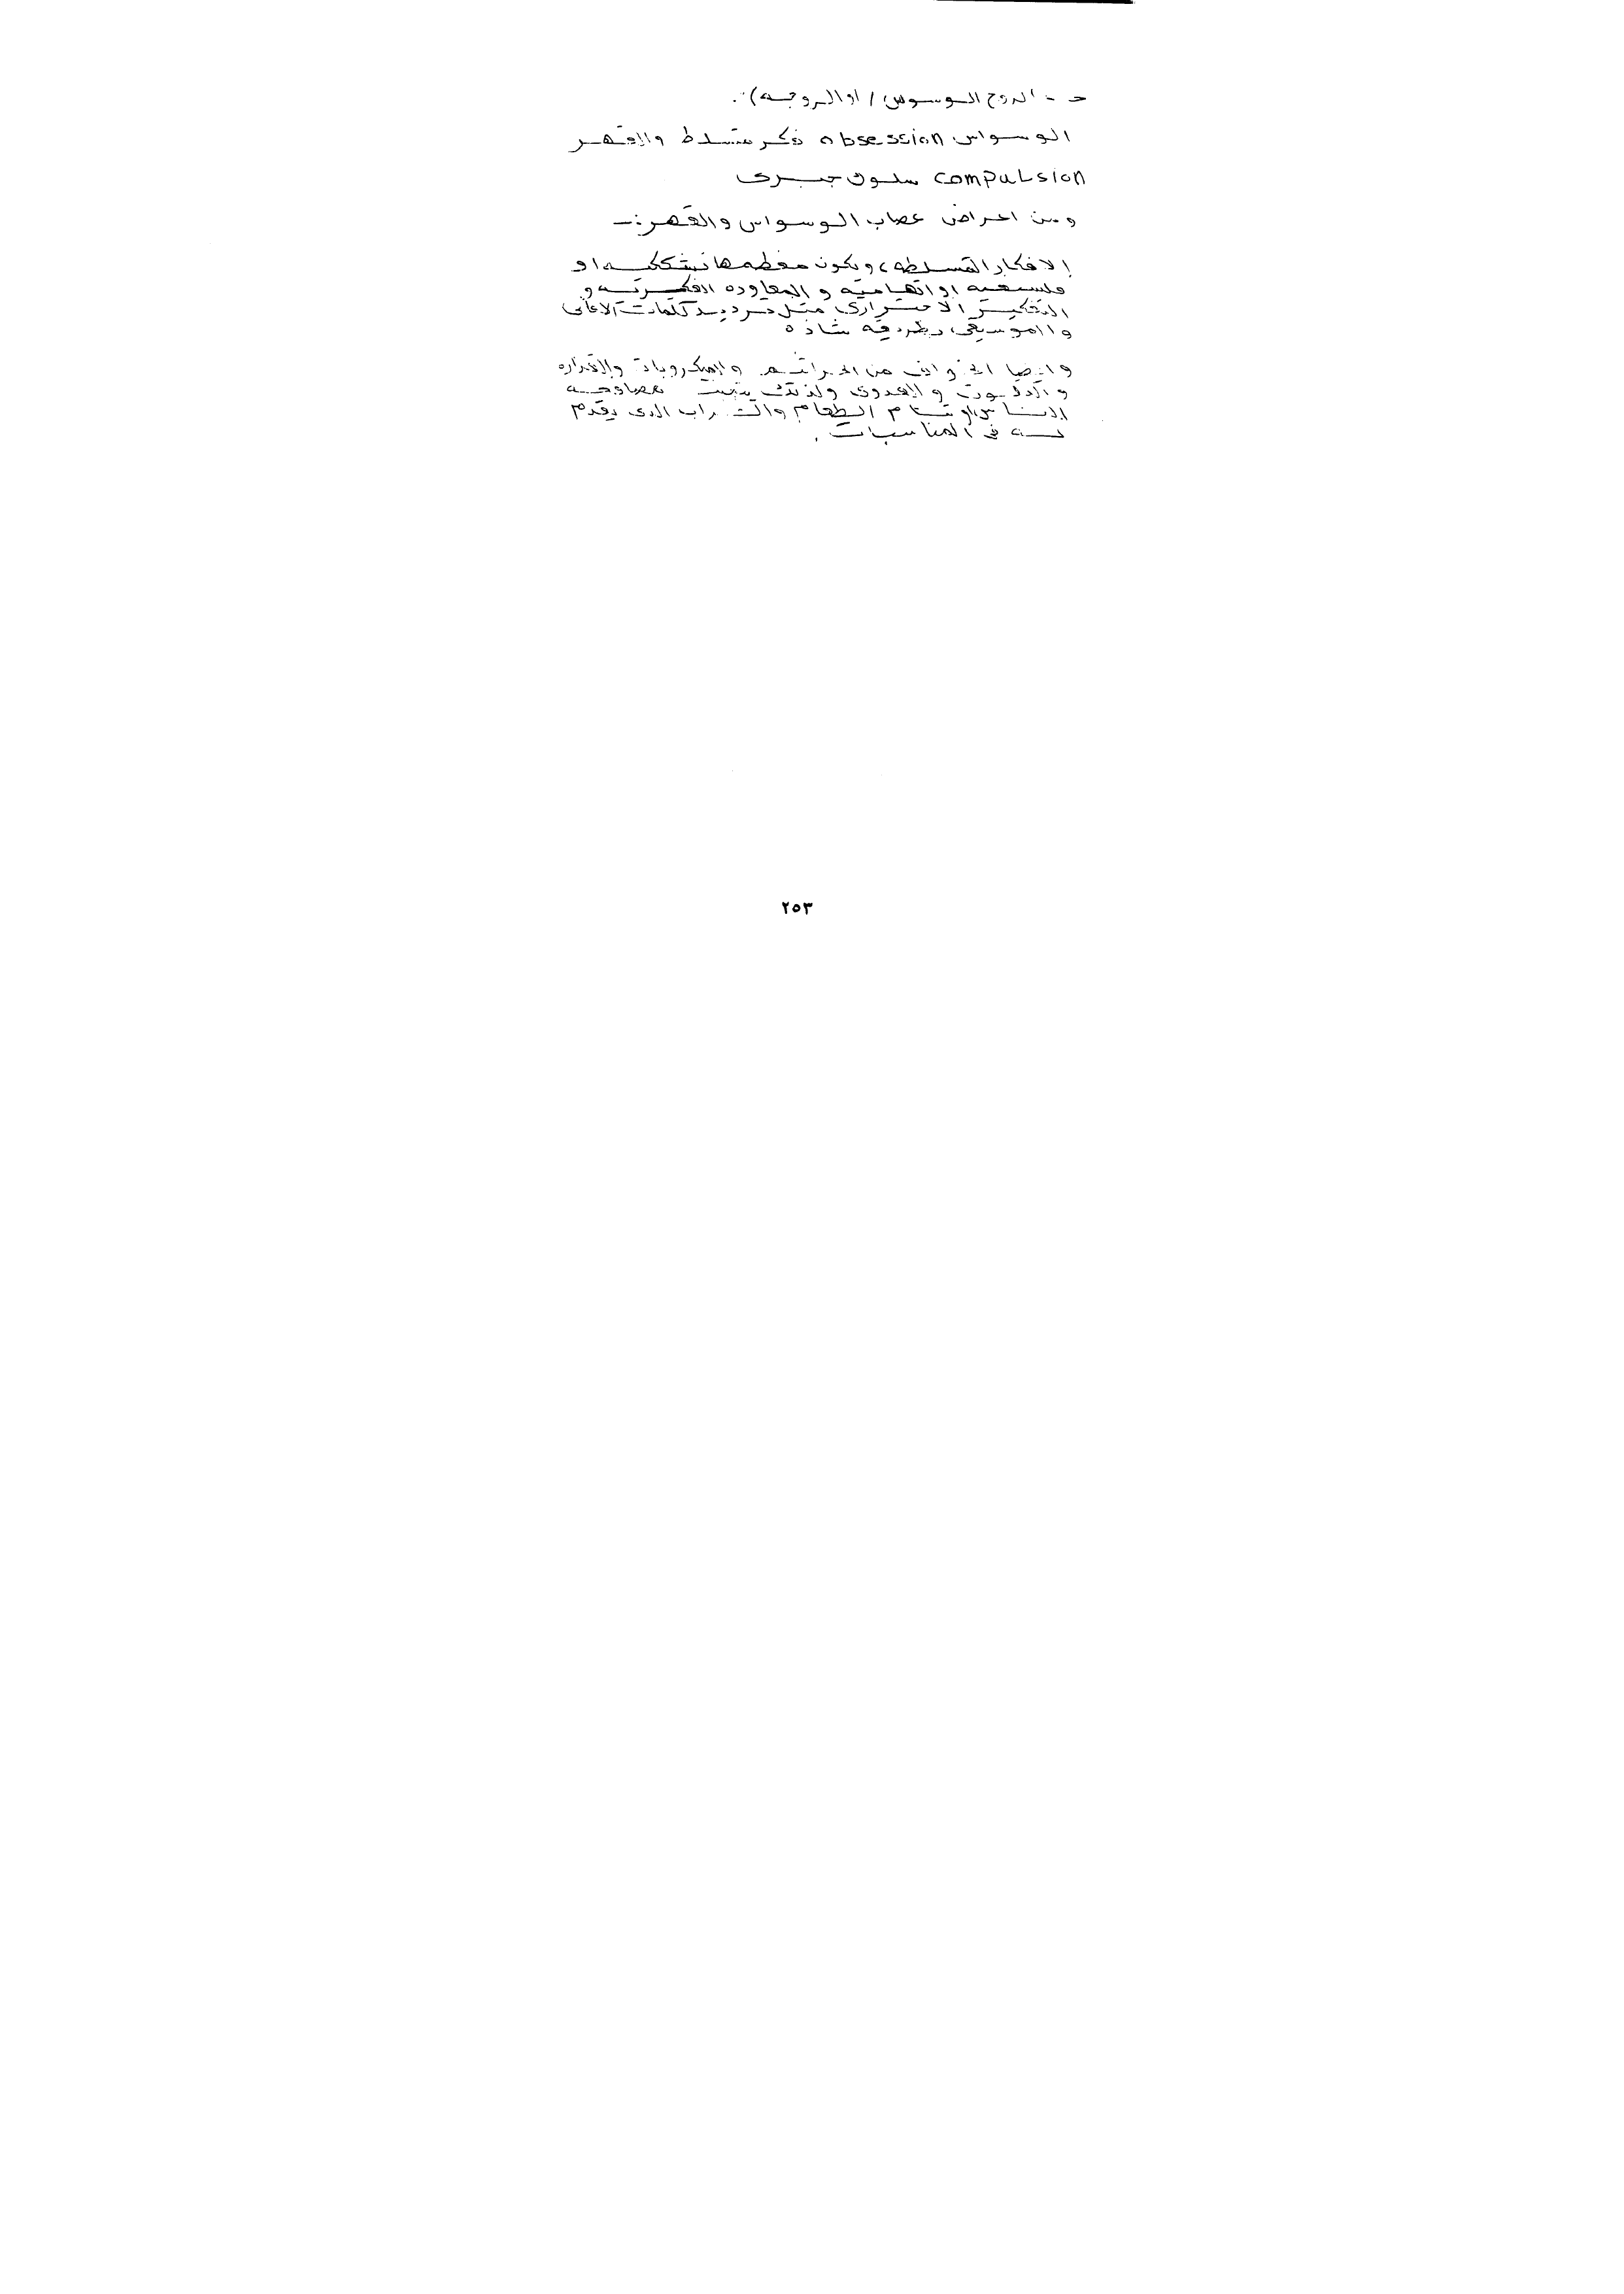 حـ - الزوج الوسوس (او الزوجه).
الوسواس obsession فكر متسلط والقهر
compulsion سلوك جبرى
ومن اعراض عصاب الوسواس والقهر :ـ
الافكار المتسلطه، ويكون معظمها تشككيه او
فلسفيه او اتهاميه و المعاوده الفكريه و
التفكير الاجترارى مثل ترديد كلمات الاغانى
والموسيقى بطريقه شاذه
وايضا الخواف من الجراثيم والميكروبات والقذاره
والتلوث والعدوى ولذلك يتجنب مصافحه
الناس الطعام والشراب الذى يقدم
له فى المناسبات.
٢٥٣